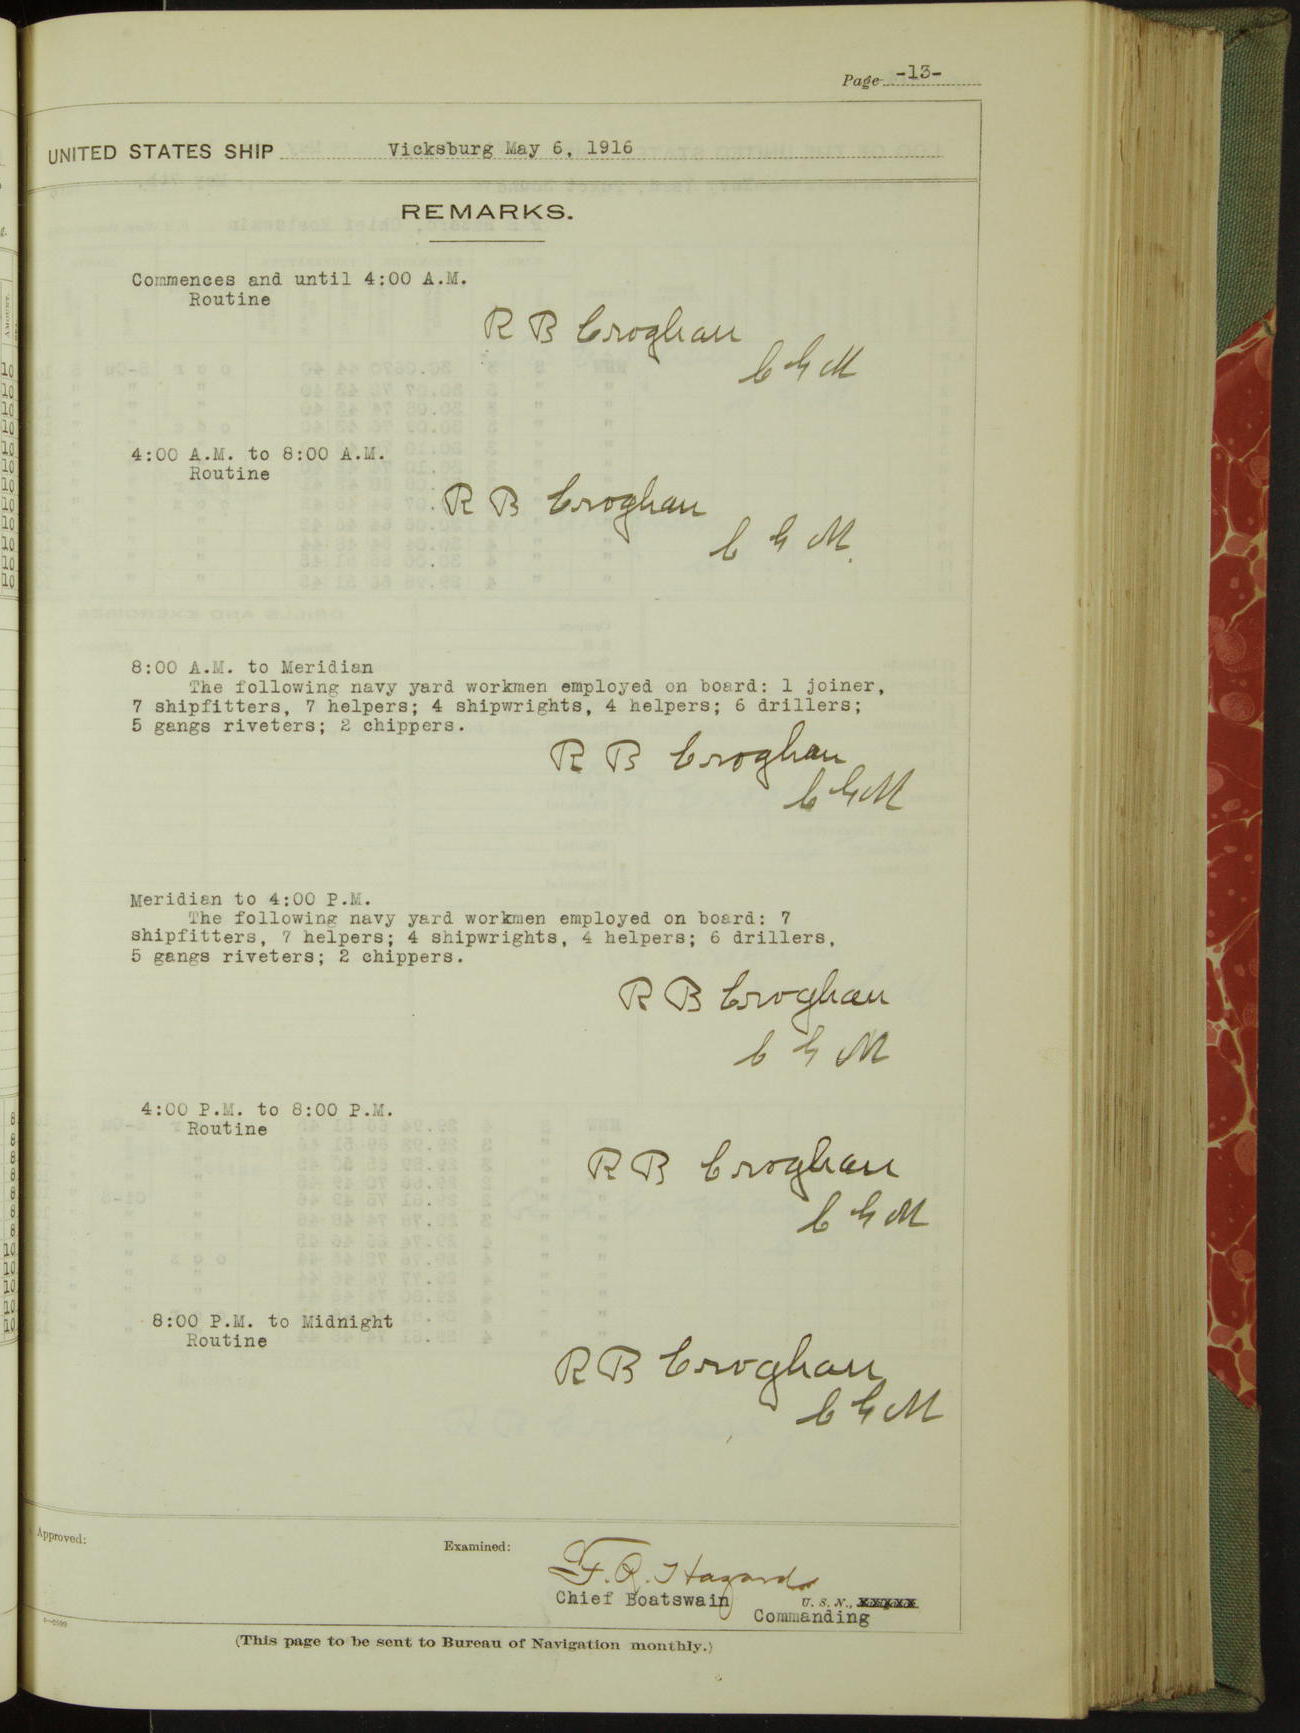 Page -13-
UNITED STATES SHIP Vicksburg May 6, 1916
REMARKS.
Commences and until 4:00 A.M.
Routine
R B Croghan
C G M
4:00 A.M. to 8:00 A.M.
Routine
R B Croghan
C G M.
8:00 A.M. to Meridian
The following navy yard workmen employed on board: 1 joiner,
7 shipfitters, 7 helpers; 4 shipwrights, 4 helpers; 6 drillers;
5 gangs riveters; 2 chippers.
R B Croghan
C G M
Meridian to 4:00 P.M.
The following navy yard workmen employed on board: 7
shipfitters, 7 helpers; 4 shipwrights, 4 helpers; 6 drillers,
5 gangs riveters; 2 chippers.
R B Croghan
C G M
4:00 P.M. to 8:00 P.M.
Routine
R B Croghan
C G M
8:00 P.M. to Midnight
Routine
R B Croghan
C G M
Approved:
Examined:
F. R. Hazard
Chief Boatswain U. S. N.,
Commanding
(This page to be sent to Bureau of Navigation monthly.)